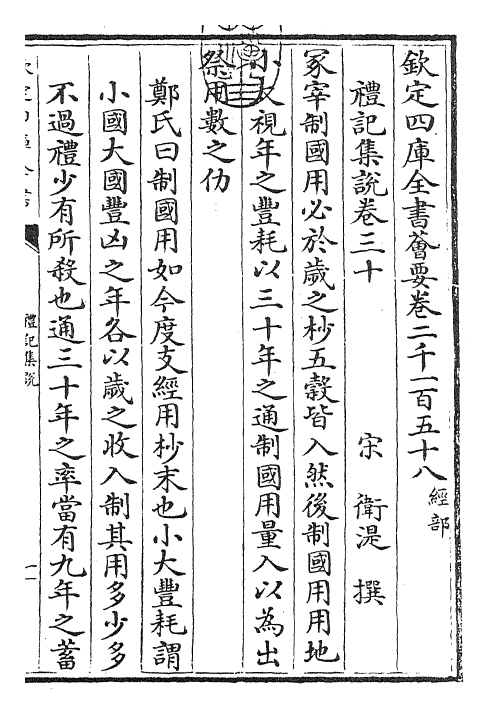 欽定四庫全書薈要卷二千一百五十八 經部
禮記集說卷三十 宋 衛湜 撰
冢宰制國用必於歲之杪五穀皆入然後制國用用地
小大視年之豐耗以三十年之通制國用量入以為出
祭用數之仂
鄭氏曰制國用如今度支經用杪末也小大豐耗謂
小國大國豐凶之年各以歲之收入制其用多少多
不過禮少有所殺也通三十年之率當有九年之蓄
禮記集說
一